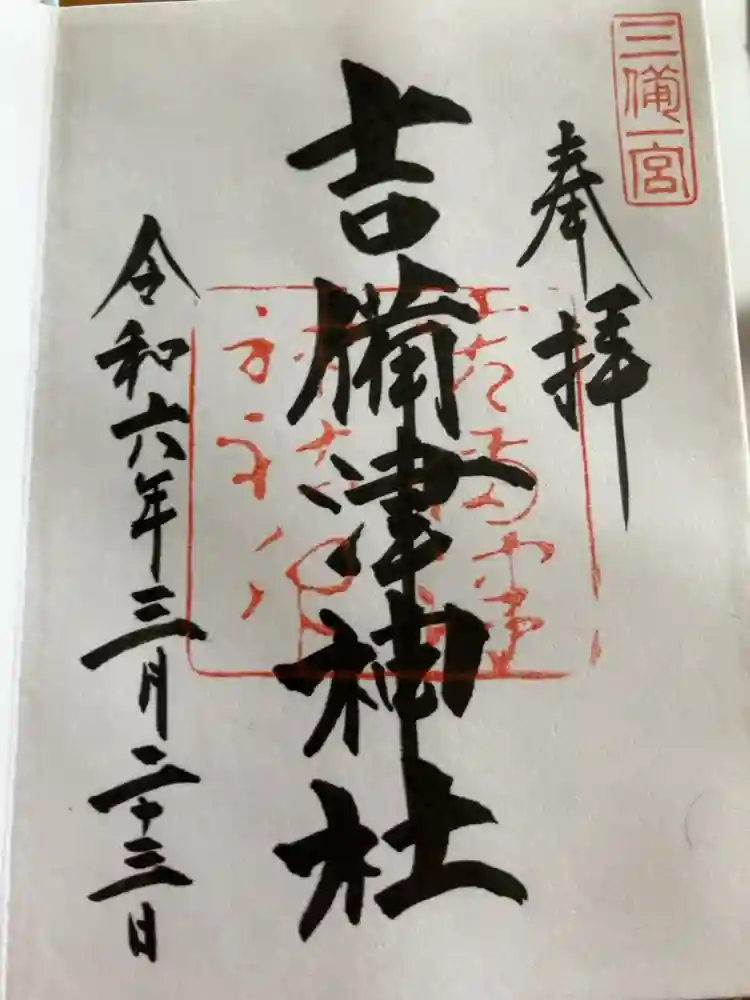 三備一宮
奉拝
吉備津神社
令和六年三月二十三日